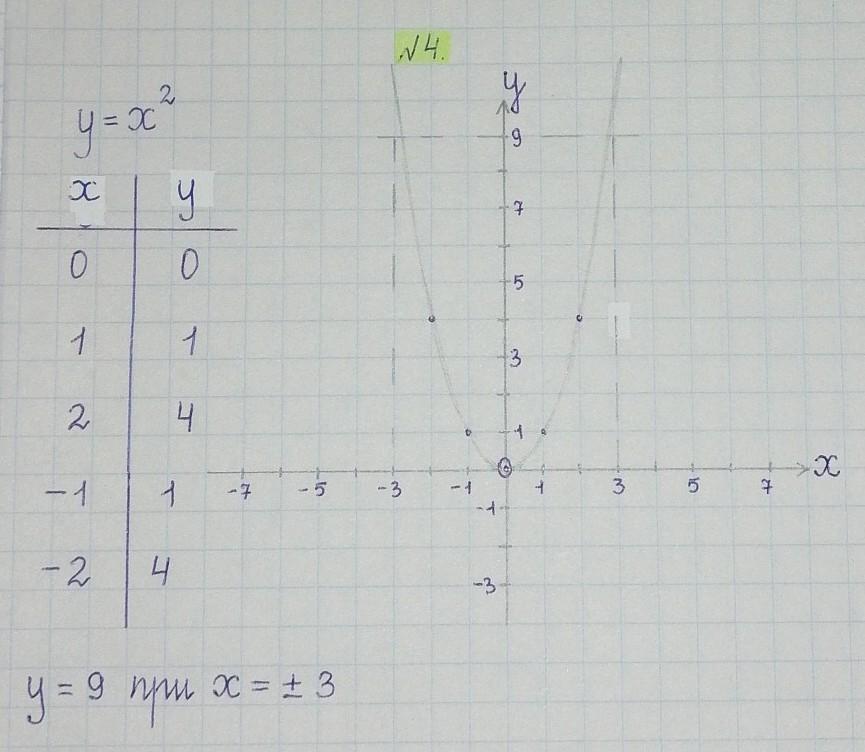 №4.
y = x²
x y
0 0
1 1
2 4
-1 1
-2 4
y
9
7
5
3
1
-7 -5 -3 -1 1 3 5 7 x
-1
-3
y = 9 при x = ± 3